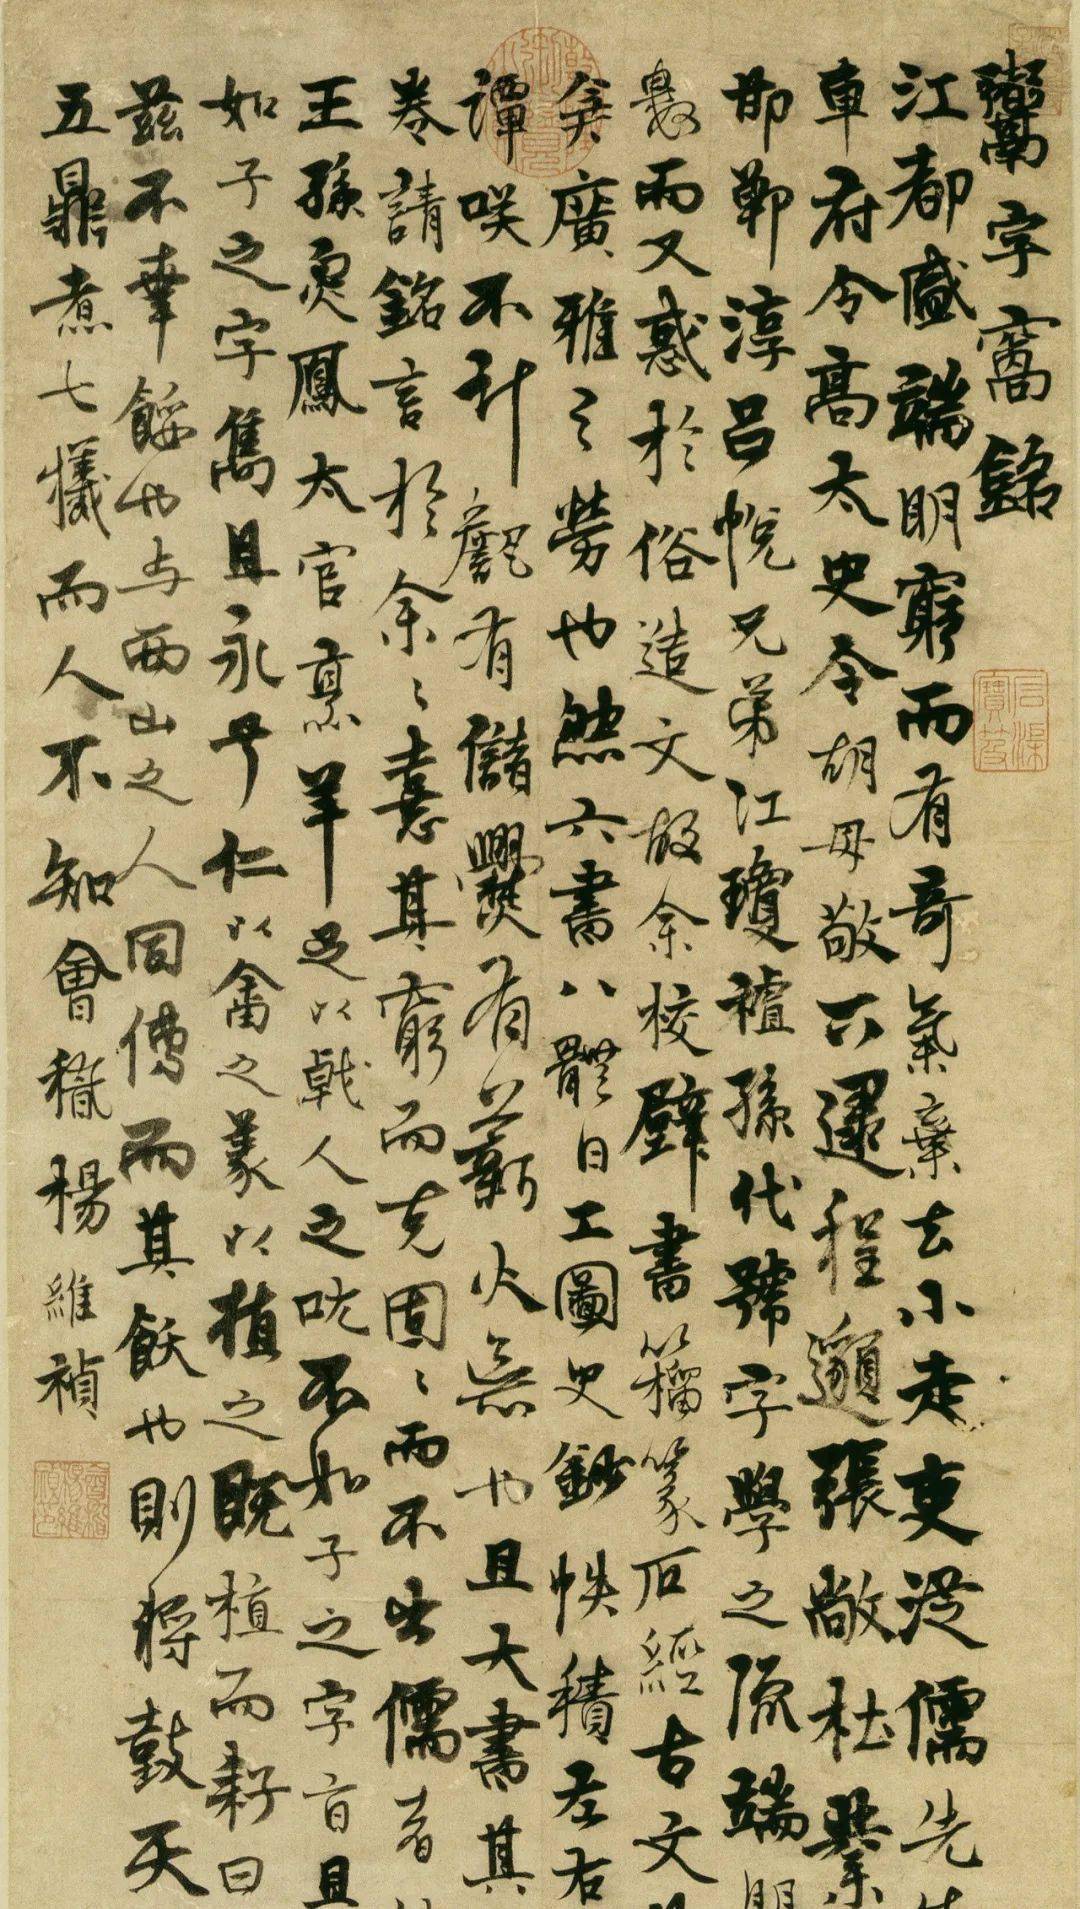 鬻字窩銘
江都盛端明窮而有奇氣棄去小走吏從儒先生
車府令高太史令胡毋敬六還程邈張敞杜鄴
邯鄲淳呂悅兄弟江瓊禮孫代號字學之源端明
患而又惑於俗造文故余校壁書籀篆石經古文
矣廣雅之勞也然六書八體日工圖史鈔帙積左右
譚咲不計甔有儲爨有薪火無也且大書其
卷請銘言於余余憙其窮而克固固而不出儒者
王孫炙鳳太官羊足以戟人之吭不如子之字盲且
如子之字雋且永乎仁以畬之義以植之既植而耔曰
茲不幸餒也与西山之人同傳而其飫也則將鼓天
五鼎煮七犧而人不知會稽楊維禎